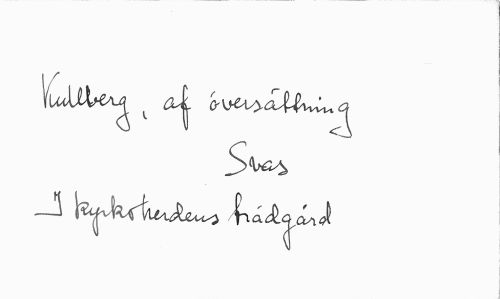 Kullberg, af översättning
Svas
I kyrkoherdens trädgård